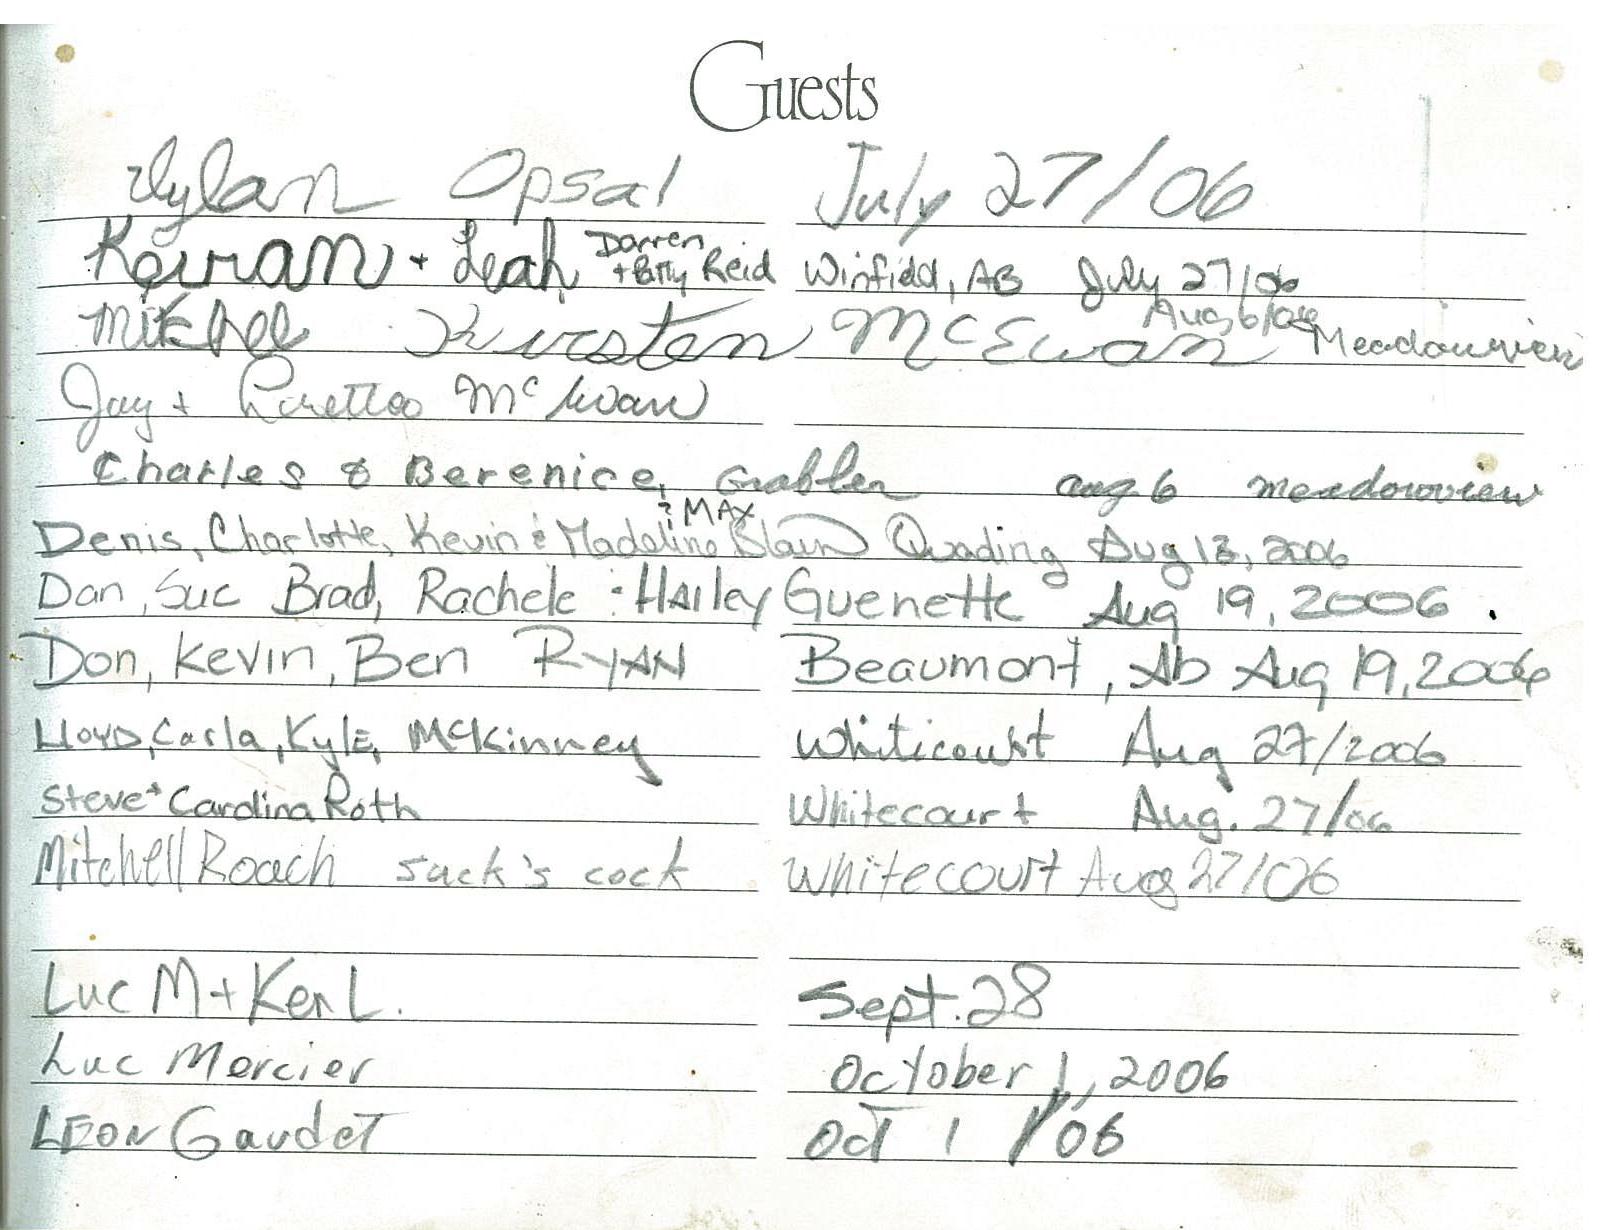 Guests
Dylan Opsal July 27/06
Keiran + Leah Darren + Patty Reid Winfield, AB July 27/06
Mikhel Kirsten McEwan Aug 6/06 Meadowview
Jay + Loretta McEwan
Charles & Berenice Grabler aug 6 meadowview
Denis, Charlotte, Kevin & Madeline & MAX Blain Quading Aug 13, 2006
Dan, Sue Brad, Rachele : HAiley Guenette Aug 19, 2006.
Don, Kevin, Ben RYAN Beaumont, Ab Aug 19, 2006
LLOYD, Carla, Kyle, McKinney Whiticourt Aug 27/2006
Steve + Carolina Roth Whitecourt Aug. 27/06
Mitchell Roach suck's cock Whitecourt Aug 27/06
Luc M + Ken L. Sept. 28
Luc Mercier October 1, 2006
LEON Gaudet Oct 1 /06